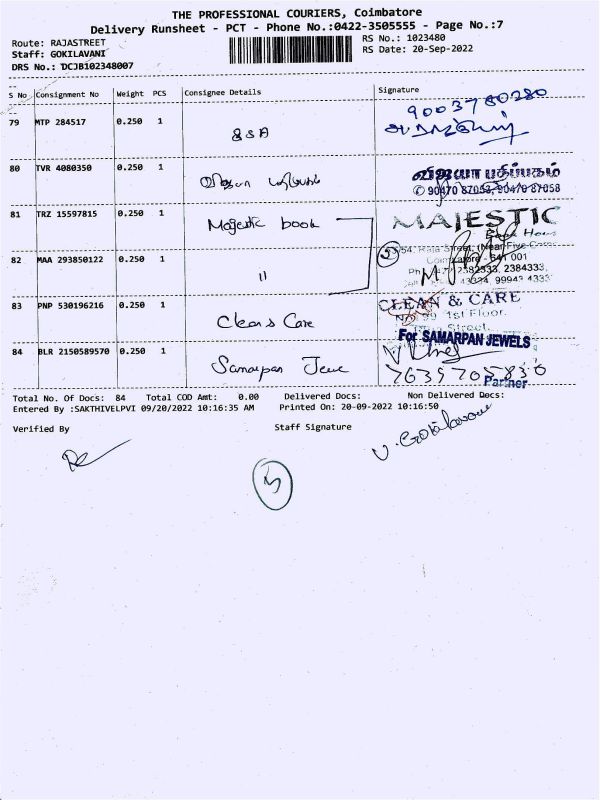 THE PROFESSIONAL COURIERS, Coimbatore
Delivery Runsheet - PCT - Phone No.:0422-3505555 - Page No.:7
Route: RAJASTREET
Staff: GOKILAVANI
DRS No.: DCJB102348007
RS No.: 1023480
RS Date: 20-Sep-2022
S No Consignment No Weight PCS Consignee Details Signature
79 MTP 284517 0.250 1 9003780280
80 TVR 4080350 0.250 1 விஜயா பதிப்பகம்
✆ 90470 87053, 90470 87058
81 TRZ 15597815 0.250 1 Majestic book MAJESTIC
Book House
53/54, Raja Street, (Near Five Corner
82 MAA 293850122 0.250 1 " Coimbatore - 641 001
2382333, 2384333,
43334, 99943 4333
83 PNP 530196216 0.250 1 Clean & Care CLEAN & CARE
1st Floor,
Street,
For SAMARPAN JEWELS
84 BLR 2150589570 0.250 1 Samarpan Jewe 7639705836
Partner
Total No. Of Docs: 84 Total COD Amt: 0.00 Delivered Docs: Non Delivered Docs:
Entered By :SAKTHIVELPVI 09/20/2022 10:16:35 AM Printed On: 20-09-2022 10:16:50
Verified By Staff Signature